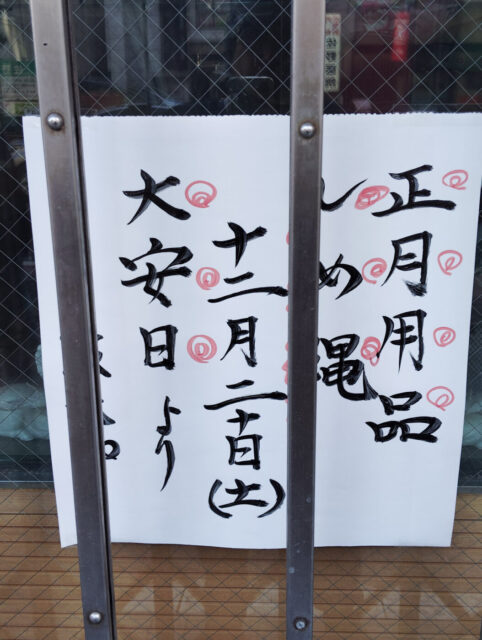 正月用品
しめ縄
十二月二十日(土)
大安日より